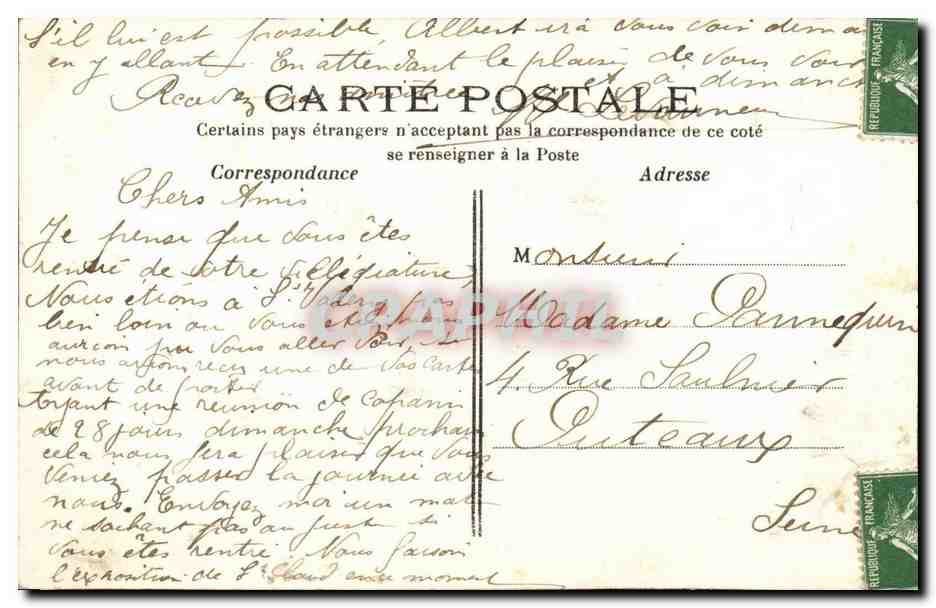 S'il lui est possible, Albert ira vous voir dema
en y allant. En attendant le plaisir de vous voir
Recevez
CARTE POSTALE
Certains pays étrangers n'acceptent pas la correspondance de ce coté
se renseigner à la Poste
Correspondance
Chers Amis
Je pense que vous êtes
rentré de votre villégiature
Nous étions à St Valery pas
bien loin ou vous
aurion pu vous aller voir, si
nous avions reçu une de vos cartes
avant de partir
Ayant une reunion de copains
de 28 jours dimanche prochain
cela nous fera plaisir que vous
veniez passer la journée avec
nous. Envoyez moi un mot
ne sachant pas au just si
vous êtes rentré. Nous faison
l'exposition de St Cloud en ce moment
Adresse
Monsieur
Madame Pannequin
4 Rue Saulnier
Puteaux
Seine
REPUBLIQUE FRANÇAISE
REPUBLIQUE FRANÇAISE